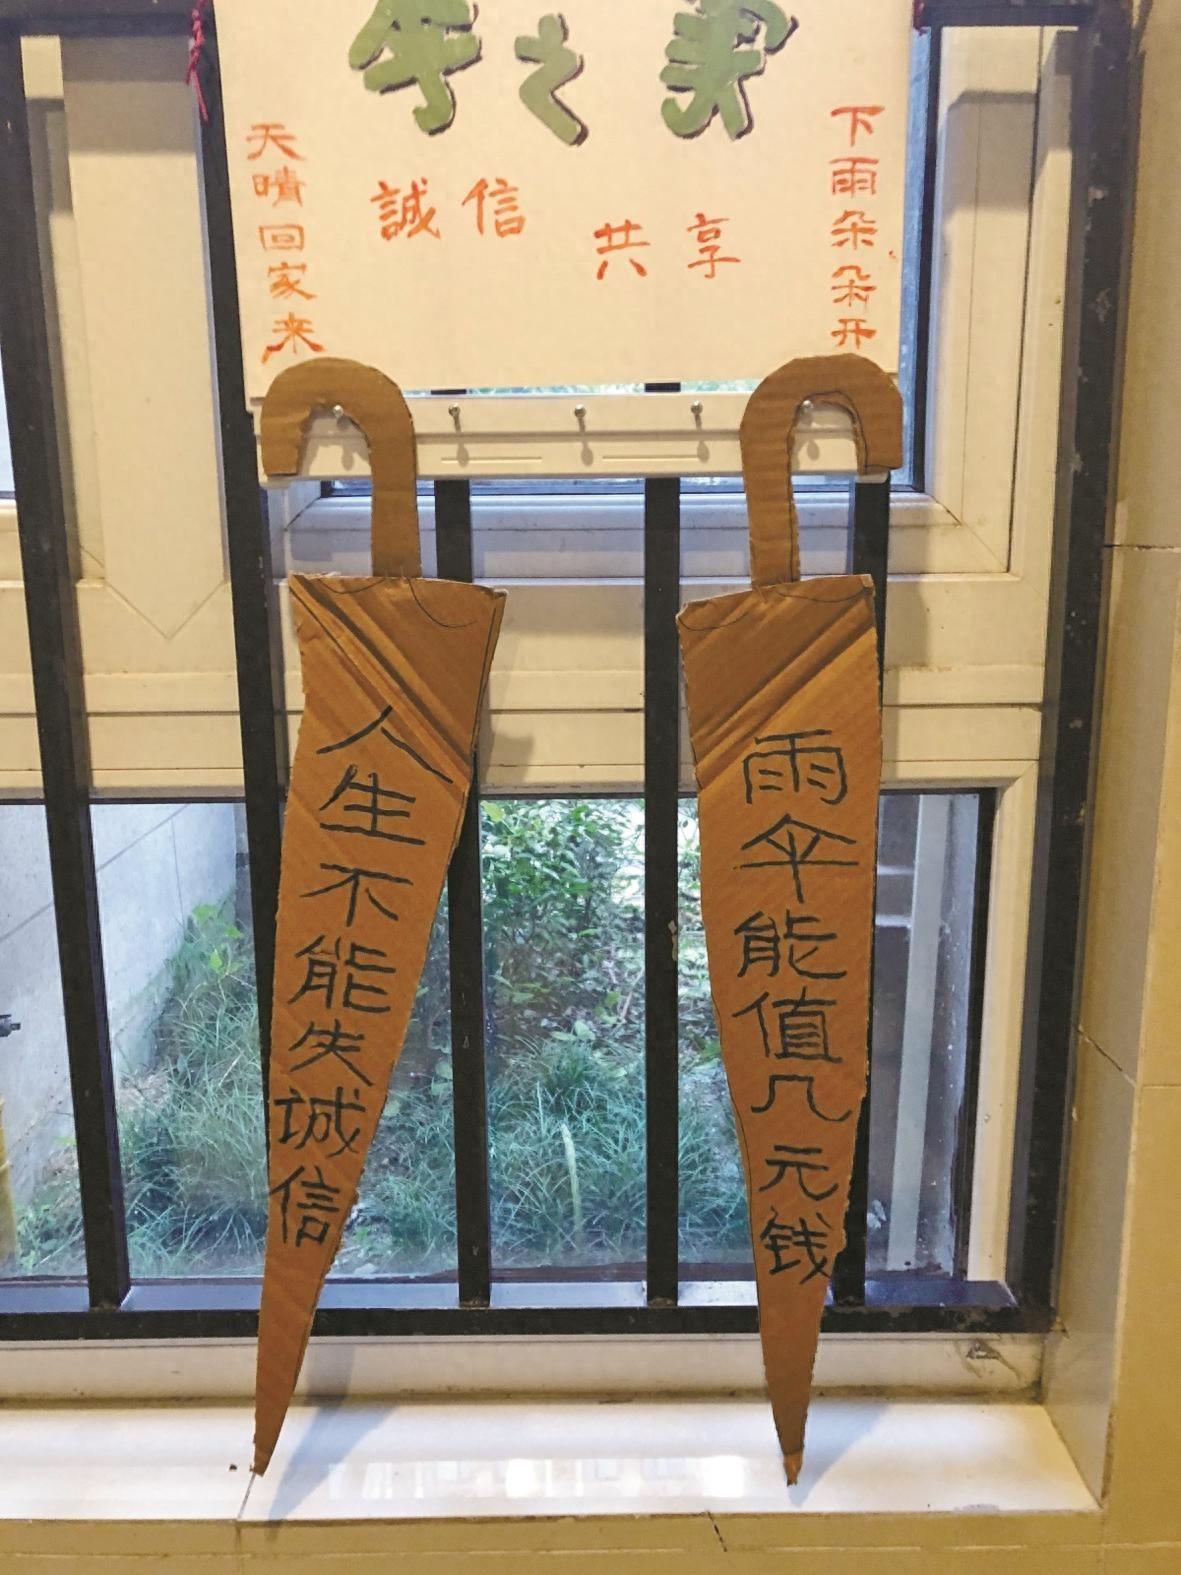 伞之家
下雨朵朵开
天晴回家来
誠信
共享
雨伞能值几元钱
人生不能失诚信